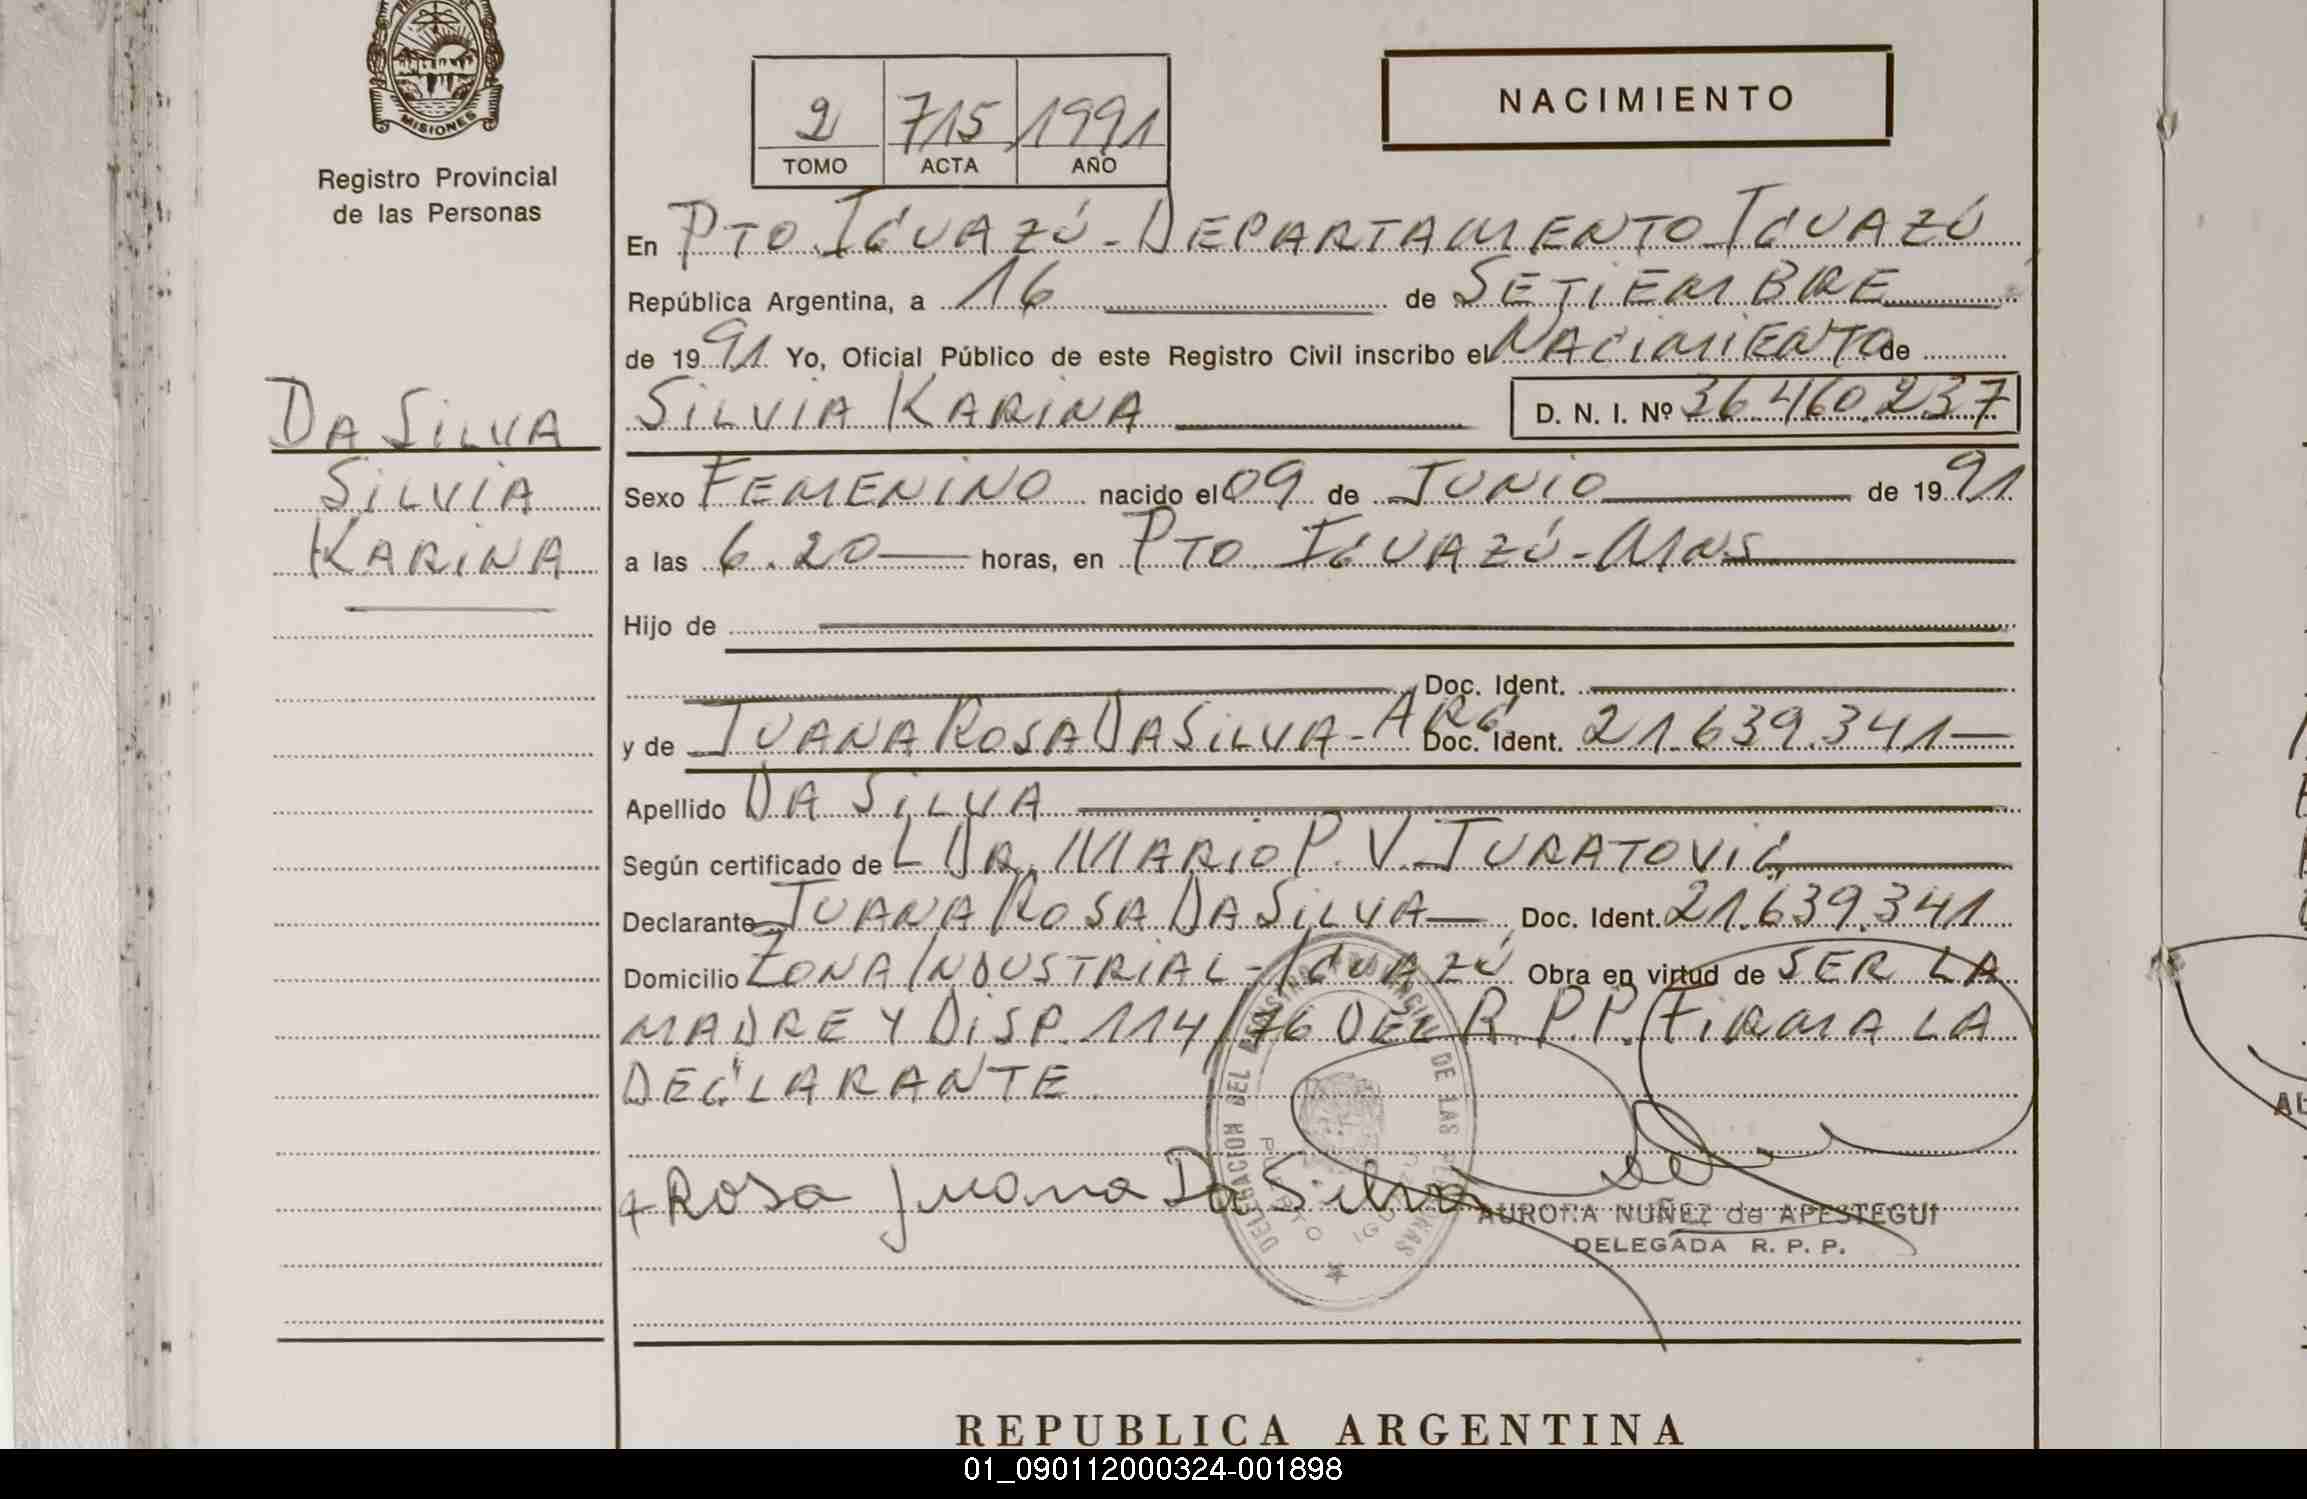 MISIONES
Registro Provincial
de las Personas
2 715 1991
TOMO ACTA AÑO
NACIMIENTO
En PTO IGUAZÚ - DEPARTAMENTO IGUAZÚ
República Argentina, a 16 de SETIEMBRE
de 1991 Yo, Oficial Público de este Registro Civil inscribo el NACIMIENTO de
SILVIA KARINA D. N. I. Nº 36.460.237
DA SILVA
SILVIA
KARINA
Sexo FEMENINO nacido el 09 de JUNIO de 1991
a las 6.20 horas, en PTO IGUAZÚ - MNS
Hijo de
Doc. Ident.
y de JUANA ROSA DA SILVA - ARG Doc. Ident. 21.639.341
Apellido DA SILVA
Según certificado de L DR. MARIO P. V. JURATOVIC
Declarante JUANA ROSA DA SILVA Doc. Ident. 21.639.341
Domicilio ZONA INDUSTRIAL - IGUAZÚ Obra en virtud de SER LA
MADRE Y DISP. 114/76 DEL R.P.P. FIRMA LA
DECLARANTE
Rosa Juana Da Silva
DELEGACION DEL REGISTRO PROVINCIAL DE LAS PERSONAS
PUERTO IGUAZU
AURORA NUÑEZ de APESTEGUI
DELEGADA R. P. P.
REPUBLICA ARGENTINA
01_090112000324-001898